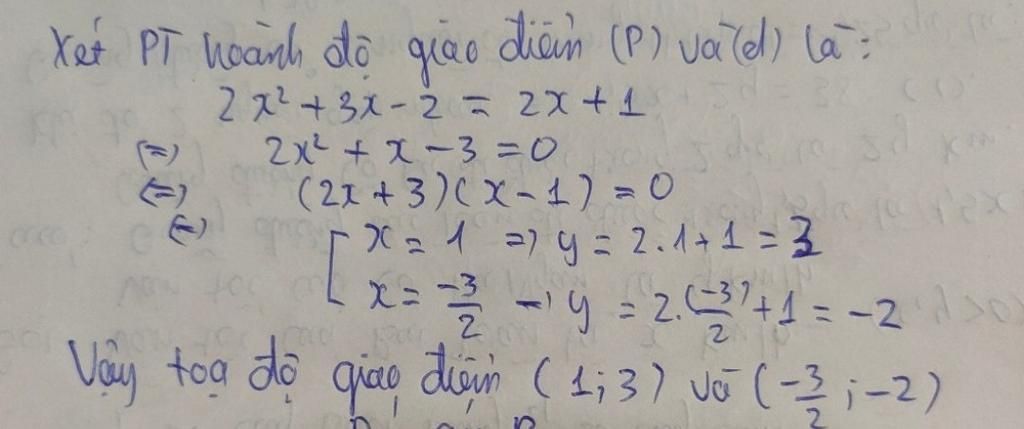 Xét PT hoành độ giao điểm (P) và (d) là:
2x² + 3x - 2 = 2x + 1
(=) 2x² + x - 3 = 0
(=) (2x + 3)(x - 1) = 0
(=) [ x = 1 => y = 2.1 + 1 = 3
x = -3/2 => y = 2.(-3)/2 + 1 = -2
Vậy toạ độ giao điểm (1; 3) và (-3/2; -2)